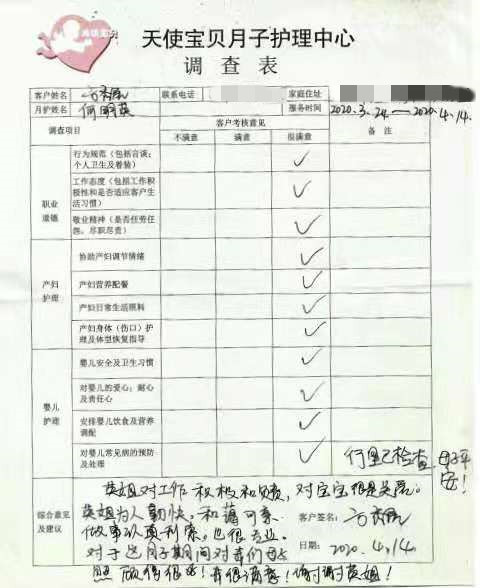 天使宝贝
天使宝贝月子护理中心
调查表
客户姓名 联系电话 家庭住址
月护姓名 何明英 服务时间 2020.3.24.—2020.4.14.
调查项目 客户考核意见 备注
不满意 满意 很满意
职业道德
行为规范（包括言谈；个人卫生及着装） ✓
工作态度（包括工作积极性和是否适应客户生活习惯） ✓
敬业精神（是否任劳任怨、尽职尽责） ✓
产妇护理
协助产妇调节情绪 ✓
产妇营养配餐 ✓
产妇日常生活照料 ✓
产妇身体（伤口）护理及体型恢复指导 ✓
婴儿护理
婴儿安全及卫生习惯 ✓
对婴儿的爱心；耐心及责任心 ✓
安排婴儿饮食及营养调配 ✓
对婴儿常见病的预防及处理 ✓ 检查 母子平安！
综合意见及建议
英姐对工作积极和负责，对宝宝很是关爱。
英姐为人勤快。和蔼可亲
做事认真利索。也很专业。
对于这月子期间对我们母子
照顾得很好！我很满意！谢谢英姐！
客户签名：
日期： 2020.4.14.